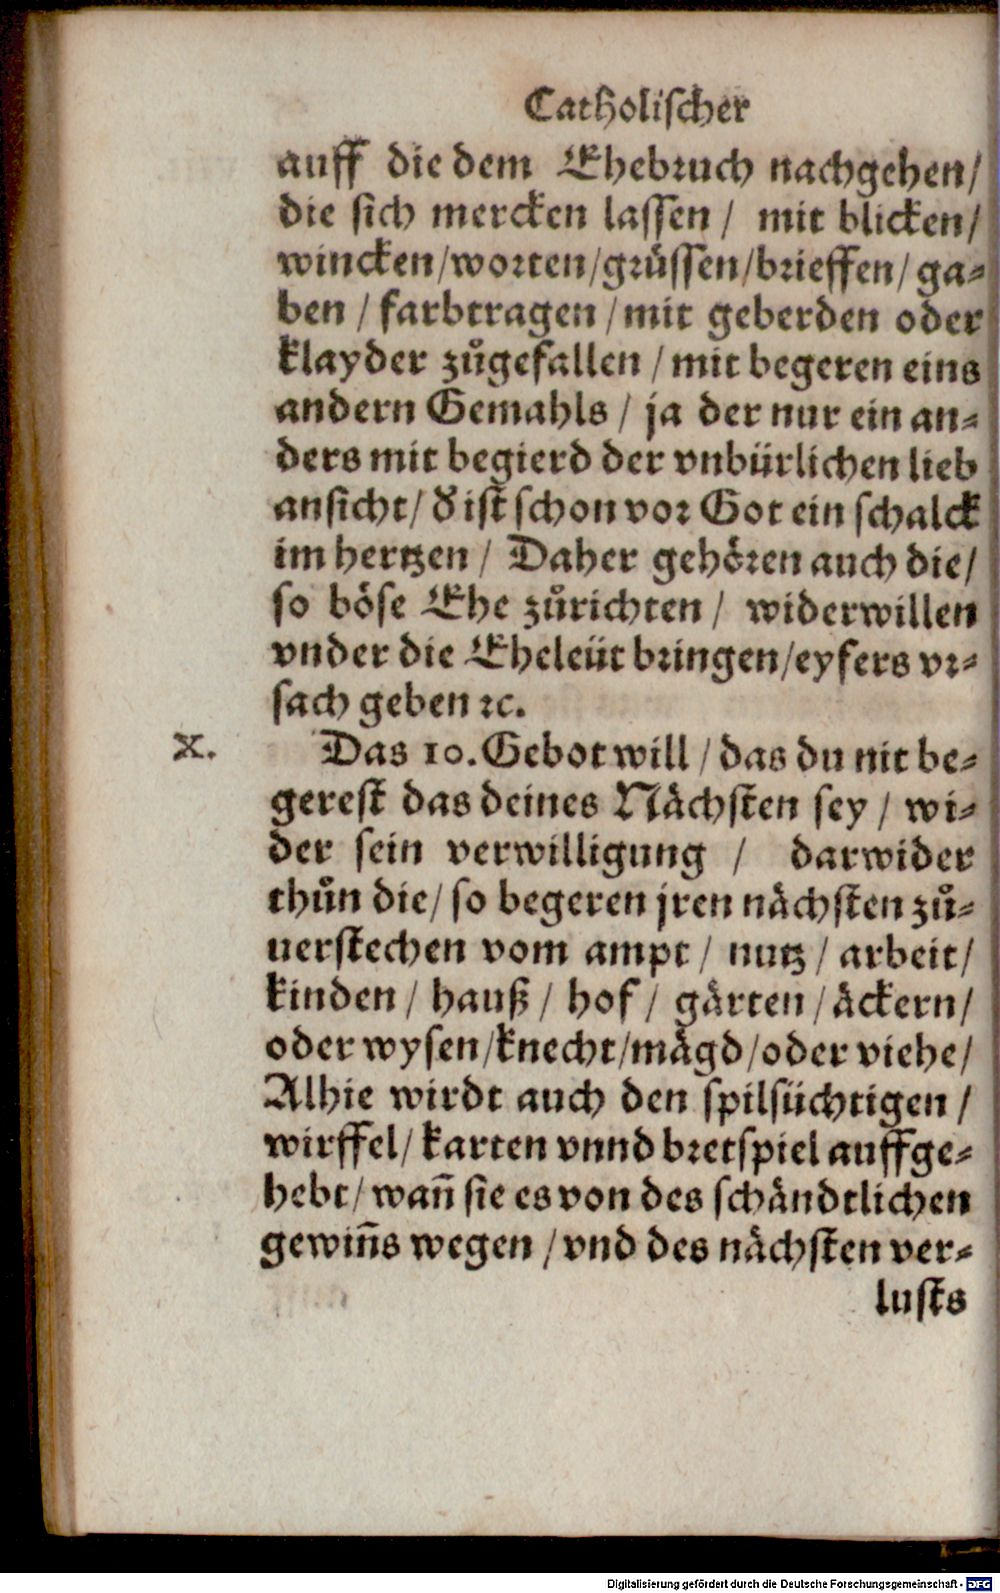 Catholischer
auff die dem Ehebruch nachgehen/
die sich mercken lassen / mit blicken/
wincken/worten/grüssen/brieffen/ ga-
ben / farbtragen / mit geberden oder
klayder zůgefallen / mit begeren eins
andern Gemahls / ja der nur ein an-
ders mit begierd der vnbürlichen lieb
ansicht/ ď ist schon vor Got ein schalck
im hertzen / Daher gehören auch die/
so böse Ehe zůrichten / widerwillen
vnder die Eheleüt bringen/eyfers vr-
sach geben ꝛc.
X. Das 10. Gebot will / das du nit be-
gerest das deines Nächsten sey / wi-
der sein verwilligung / darwider
thůn die/ so begeren jren nächsten zů-
uerstechen vom ampt / nutz / arbeit/
kinden / hauß / hof / gärten / äckern/
oder wysen/knecht/mägd/oder viehe/
Alhie wirdt auch den spilsüchtigen /
wirffel/ karten vnnd bretspiel auffge-
hebt/ wañ sie es von des schändtlichen
gewiñs wegen / vnd des nächsten ver-
lusts
Digitalisierung gefördert durch die Deutsche Forschungsgemeinschaft - DFG